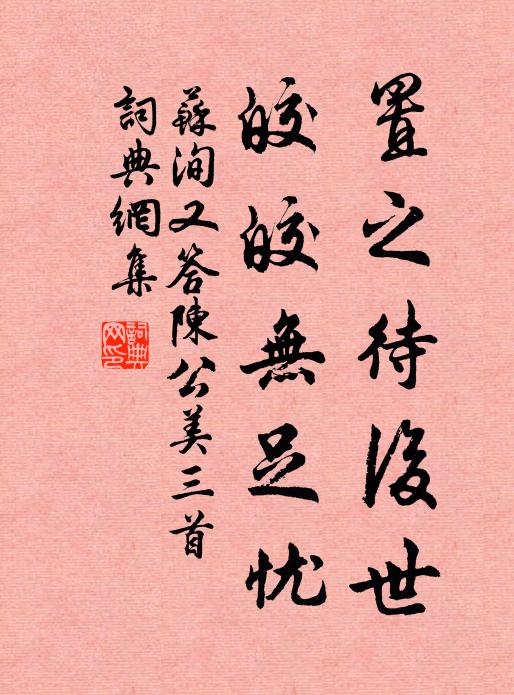 置之待後世
皎皎無足忧
蘇洵又答陳公美三首
詞典網集
詞典网印